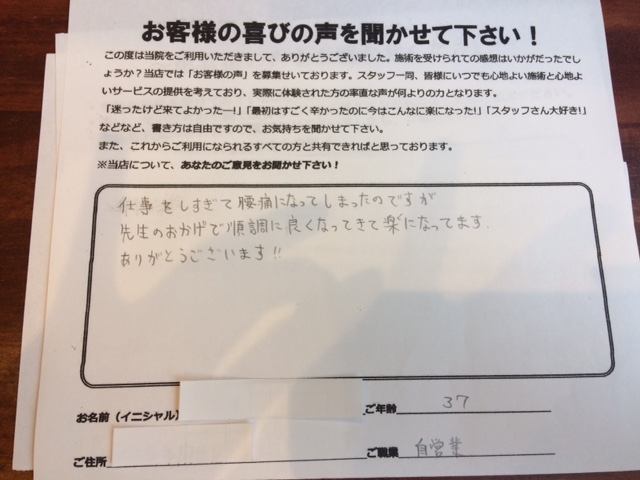 お客様の喜びの声を聞かせて下さい！
この度は当院をご利用いただきまして、ありがとうございました。施術を受けられての感想はいかがだったでし
ょうか？当店では「お客様の声」を募集せいております。スタッフ一同、皆様にいつでも心地よい施術と心地よ
いサービスの提供を考えており、実際に体験された方の率直な声が何よりの力となります。
「迷ったけど来てよかったー！」「最初はすごく辛かったのに今はこんなに楽になった！」「スタッフさん大好き！」
などなど、書き方は自由ですので、お気持ちを聞かせて下さい。
また、これからご利用になられるすべての方と共有できればと思っております。
※当店について、あなたのご意見をお聞かせ下さい！
仕事をしすぎて腰痛になってしまったのですが
先生のおかげで順調に良くなってきて楽になってます.
ありがとうございます!!
お名前（イニシャル） ご年齢 37
ご住所 ご職業 自営業